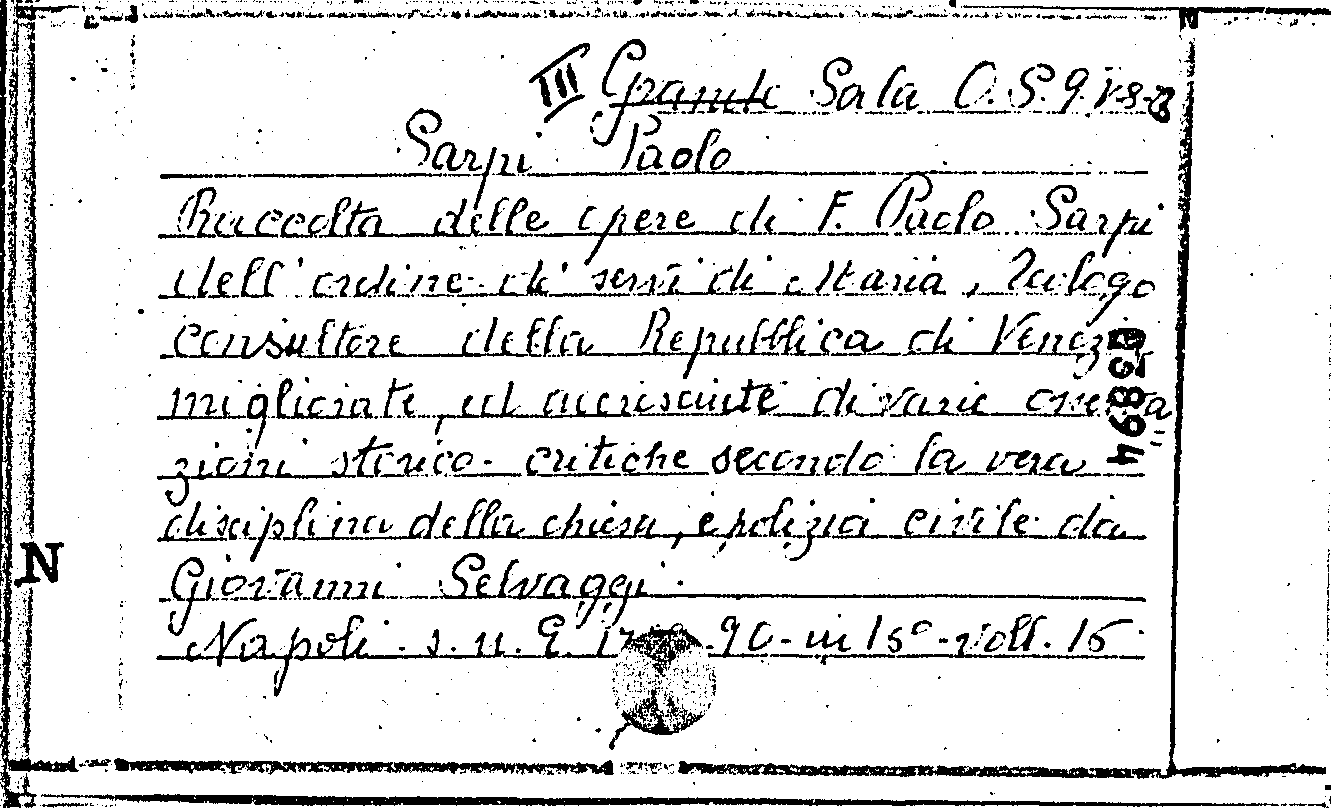 III Grande Sala O. S. 9. V. 8-
Sarpi Paolo
Raccolta delle opere di F. Paolo Sarpi
dell'ordine di servi di Maria,
consultore della Repubblica di Venezia
migliorate, ed accresciute di varie
zioni storico-critiche secondo la vera
disciplina della chiesa, e polizia civile da
Giovanni Selvaggi.
Napoli. s. n. E. 90- in 15°-voll. 15
023894
N